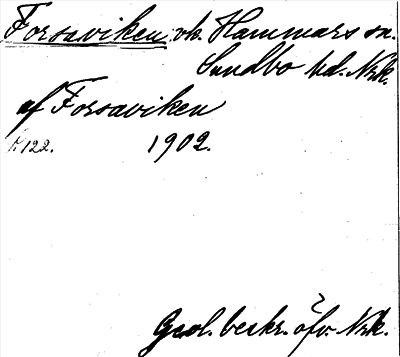 Forsaviken, vk. Hammars sn.
Sundbo hd. Nrk.
af Forsaviken
s. 122. 1902.
Geol. beskr. öfv. Nrk.